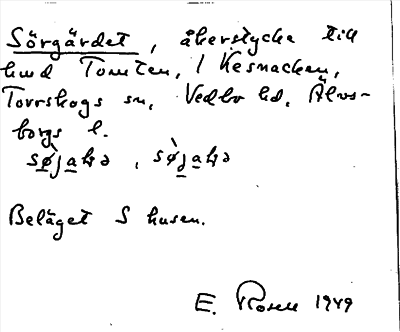 Sörgärdet, åkerstycke till
hmd Tomten, 1 Kesnacken,
Torrskogs sn, Vedbo hd, Älvs-
borgs l.
Beläget S husen.
E. Rosell 1949